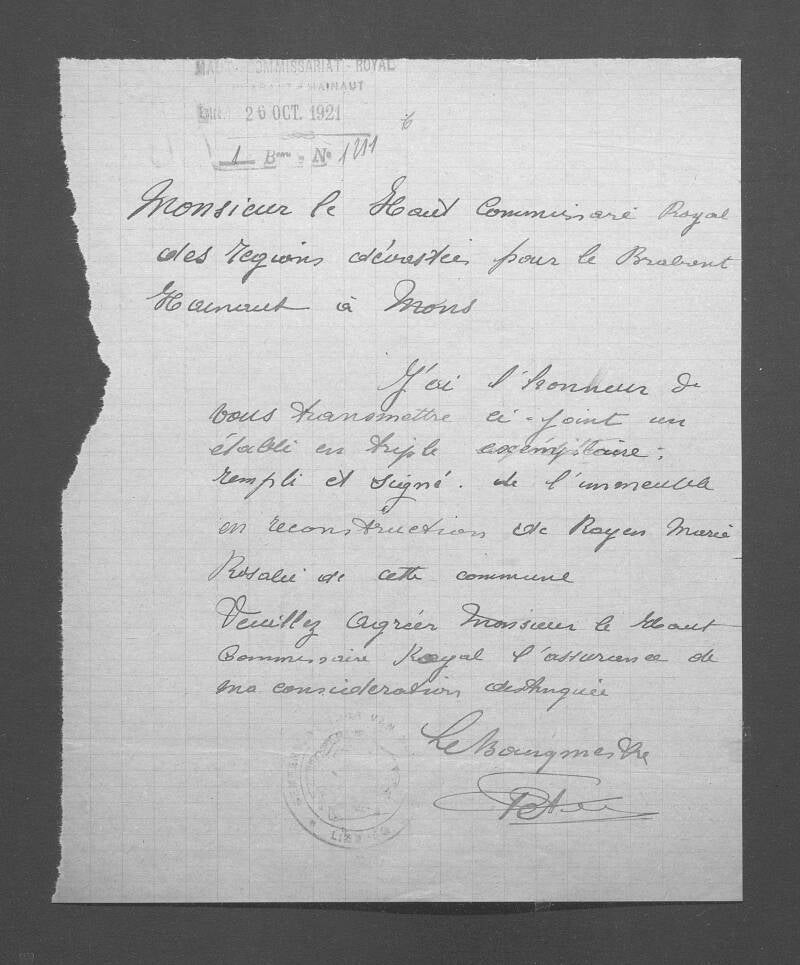 COMMISSARIAT-ROYAL
HAINAUT
26 OCT. 1921
1 Bon - No 1211
Monsieur le Haut Commissaire Royal
des regions dévastées pour le Brabant
Hainaut à Mons
J'ai l'honneur de
vous transmettre ci-joint un
établi en triple exemplaire;
rempli et signé. de l'immeuble
en reconstruction de Royen Marie
Rosalie de cette commune
Veuillez Agréer Monsieur le Haut
Commissaire Royal l'assurance de
ma consideration distinguée
Le Bourgmestre